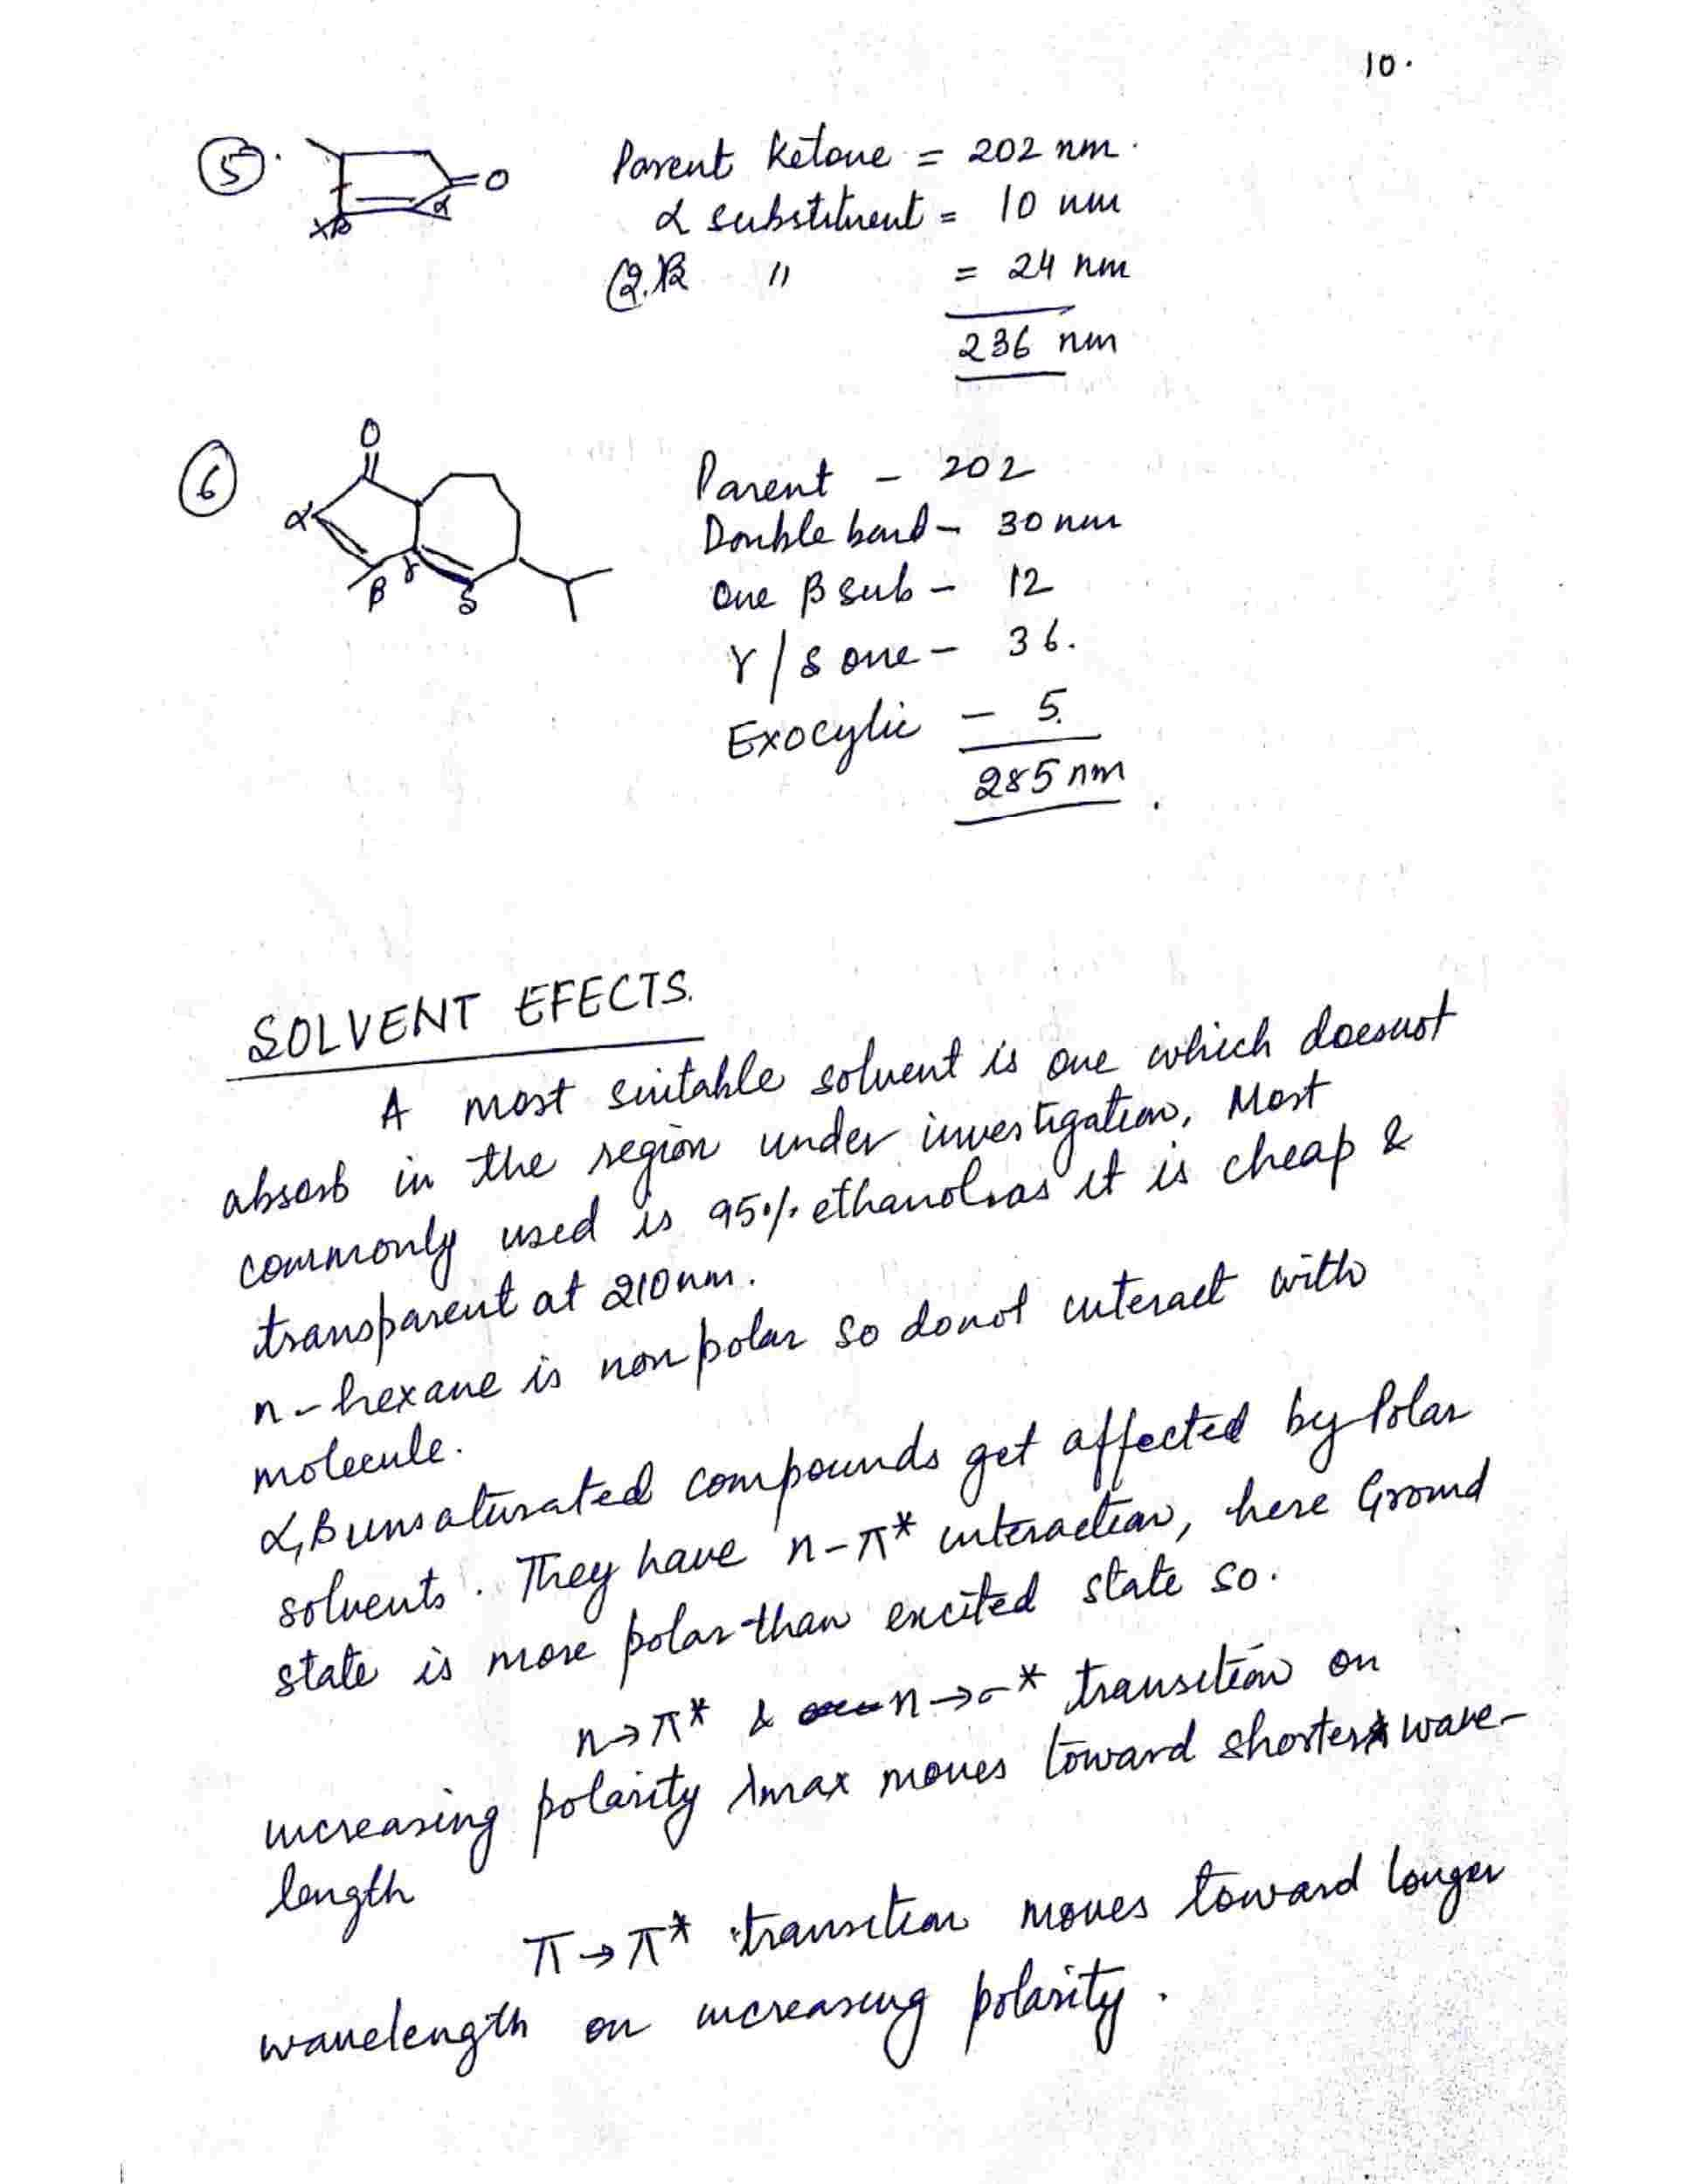 10.
5.
O
α
xβ
Parent Ketone = 202 nm.
α substituent = 10 nm
(2.β " = 24 nm
236 nm
6
O
α
β γ δ
Parent - 202
Double bond - 30 nm
One β sub - 12
γ/δ one - 36.
Exocylic - 5.
285 nm.
SOLVENT EFECTS.
A most suitable solvent is one which doesnot
absorb in the region under investigation, Most
commonly used is 95% ethanol as it is cheap &
transparent at 210 nm.
n-hexane is non polar so donot interact with
molecule.
α,β unsaturated compounds get affected by Polar
solvents. They have n-π* interaction, here Ground
state is more polar than excited state so.
n→π* & n→σ* transition on
increasing polarity λmax moves toward shorter wave-
length
π→π* transition moves toward longer
wavelength on increasing polarity.